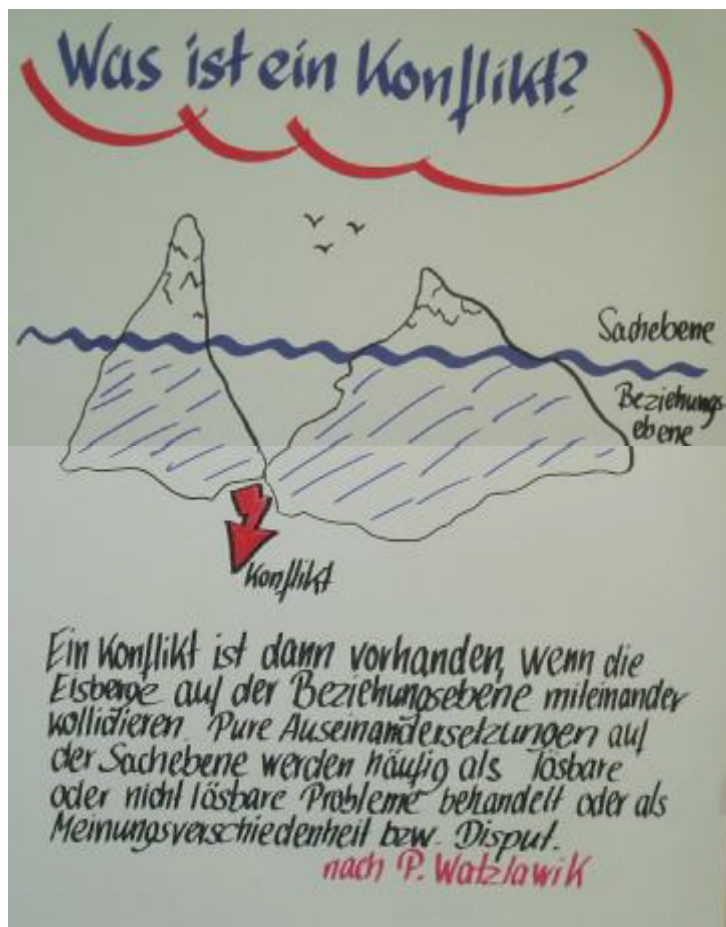 Was ist ein Konflikt?
Sachebene
Beziehungs-
ebene
Konflikt
Ein Konflikt ist dann vorhanden, wenn die
Eisberge auf der Beziehungsebene miteinander
kollidieren. Pure Auseinandersetzungen auf
der Sachebene werden häufig als lösbare
oder nicht lösbare Probleme behandelt oder als
Meinungsverschiedenheit bzw. Disput.
nach P. Watzlawik